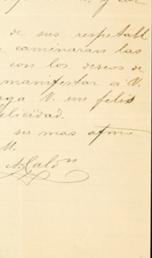 de sus respetabl
caminaran las
con los deseos de
manifestar á V.
ga V. un feliz
elicidad.
su mas atmo